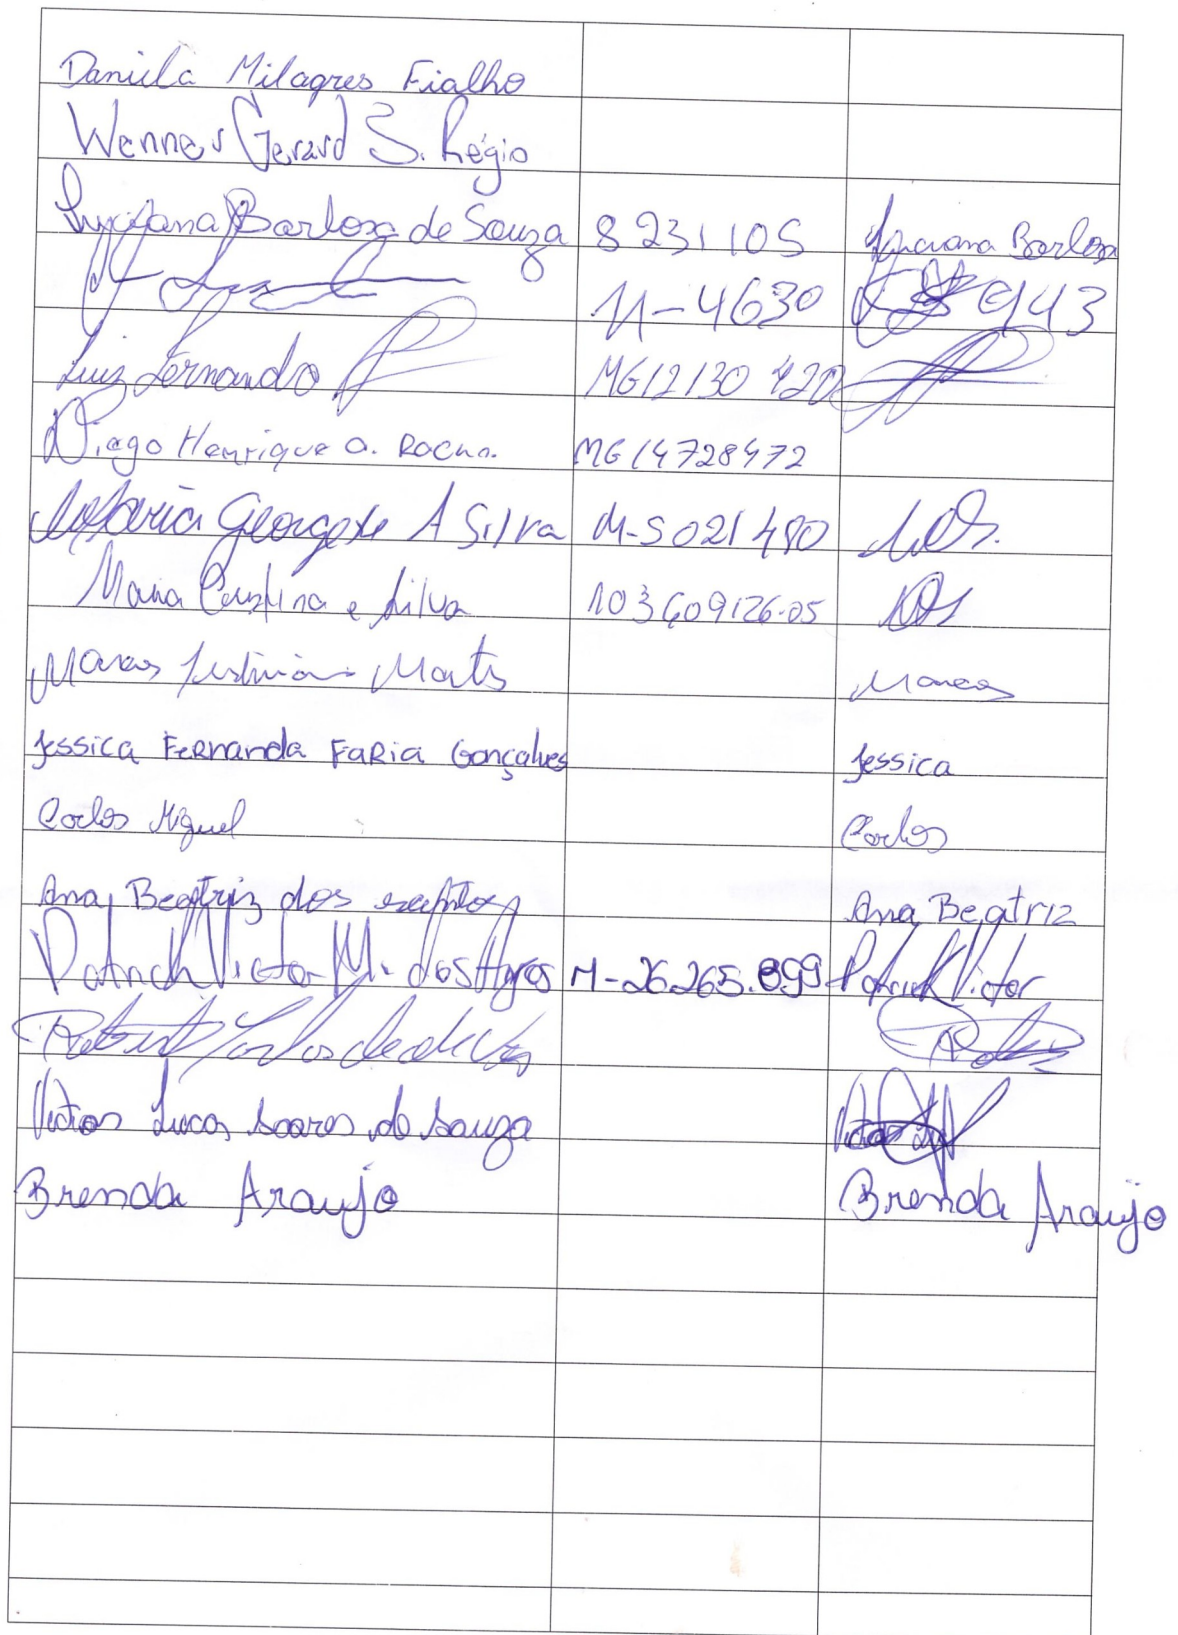 Daniela Milagres Fialho
Wenner Gerard S. Régio
Barbosa de Souza 8231105 Barbosa
11-4630 943
Luiz Fernando MG12130420
Diago Henrique A. Rocha. MG14728472
Maria Georgete A Silva M-5021480
Maria Cristina e Silva 103609126-05
Marcos Justiniano Marcos
Jessica Fernanda Faria Gonçalves Jessica
Carlos Miguel Carlos
Ana Beatriz dos santos Ana Beatriz
Patrick Victor M. dos Anjos M-26.265.899 Patrick Victor
Victor Lucas Soares de Souza
Brenda Araujo Brenda Araujo